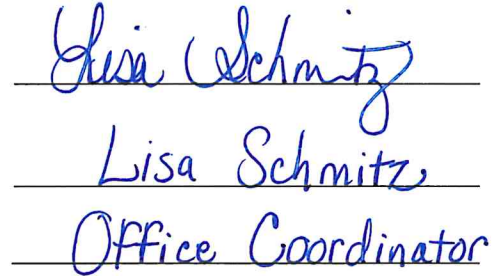 Lisa Schmitz
Lisa Schmitz
Office Coordinator